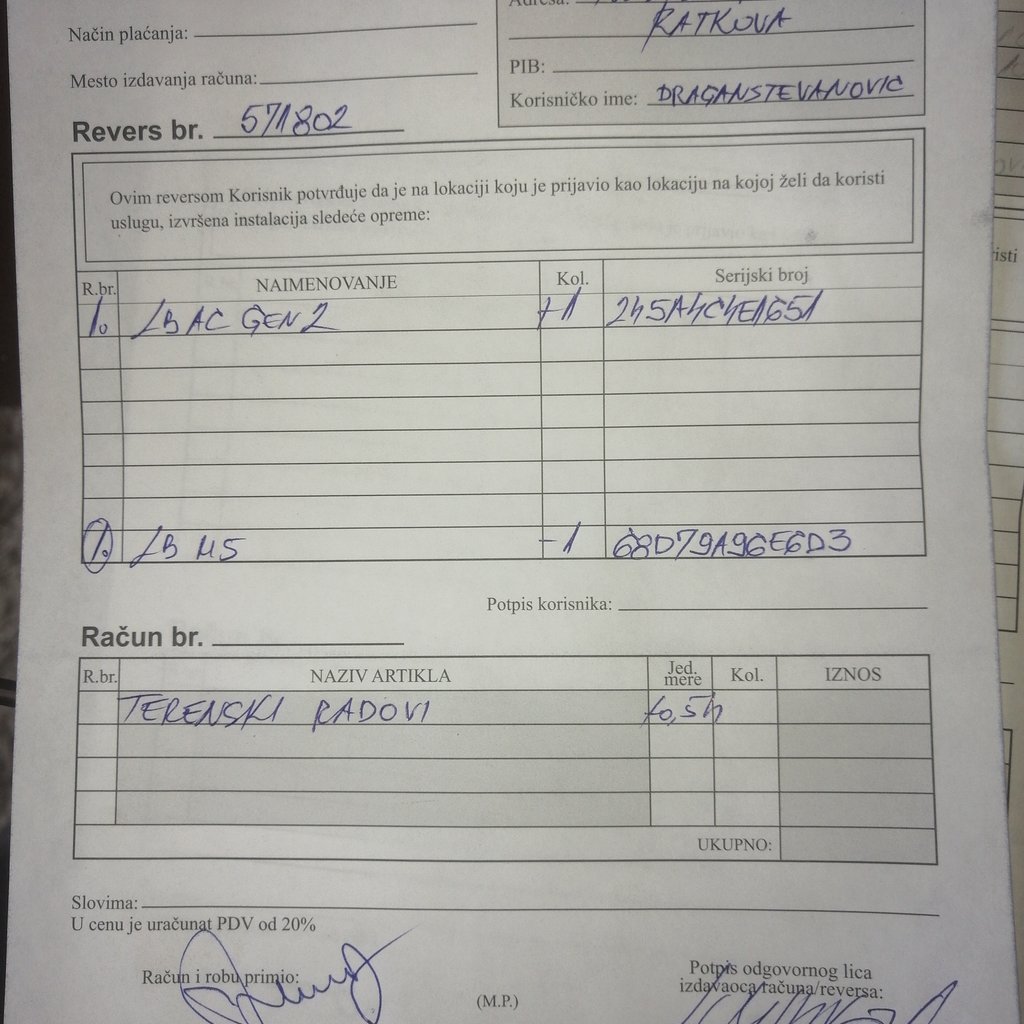 Način plaćanja:
Adresa:
RATKOVA
Mesto izdavanja računa:
PIB:
Korisničko ime: DRAGANSTEVANOVIC
Revers br. 571802
Ovim reversom Korisnik potvrđuje da je na lokaciji koju je prijavio kao lokaciju na kojoj želi da koristi
uslugu, izvršena instalacija sledeće opreme:
R.br. NAIMENOVANJE Kol. Serijski broj
1. LB AC GEN2 +1 245A4C4E1651
1. LB M5 -1 68D79A96E6D3
Potpis korisnika:
Račun br.
R.br. NAZIV ARTIKLA Jed. mere Kol. IZNOS
TERENSKI RADOVI +0,5h
UKUPNO:
Slovima:
U cenu je uračunat PDV od 20%
Račun i robu primio:
(M.P.)
Potpis odgovornog lica
izdavaoca računa/reversa:
isti